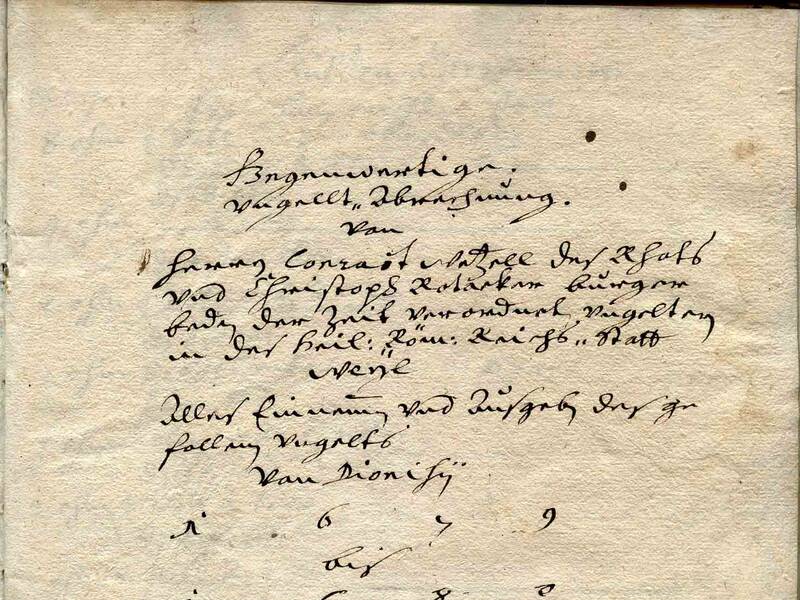 Gegenwertige.
Vngellt„ Abrechnung.
von
Herrn Conradt Wetzell des Rhats
vnd Christoph Rotacker burger
beden der Zeit verordnet Vngeltern
in des Heil: Röm: Reichs„ Statt
Weyl
Alles Einnemen vnd Ausgeben des ge
fallenen Vngelts
Von Dionisij
1 6 7 9
bis
1 6 8 0